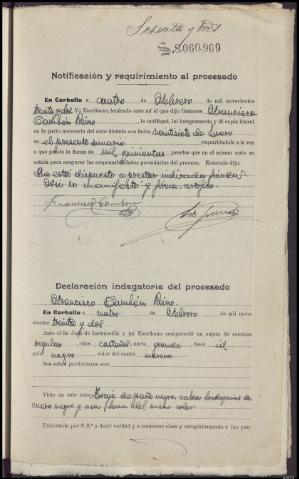 Setenta y tres
S.8060.969
Notificación y requirimiento al procesado
En Carballo a cuatro de Febrero de mil novecientos
treinta y dos Yo Escribano, teniendo ante mí al que dijo llamarse Francisco
Cambón Reino le notifiqué, leí íntegramente y dí copia literal
en la parte necesaria del auto dictado con fecha veintisiete de Enero
en el presente sumario requiriéndole a la vez
a que preste la fianza de mil quinientas pesetas que en el mismo auto se
señala para asegurar las responsabilidades pecuniarias del proceso. Enterado dijo:
Que está dispuesto a prestar indicada fianza
Así lo manifestó y firma, certifico.
Francisco Cambón
Declaración indagatoria del procesado
Francisco Cambón Reino.
En Carballo a cuatro de Febrero de mil nove-
cientos treinta y dos
Ante el Sr. Juez de Instrucción y mi Escribano compareció un sujeto de estatura
regular ojos castaños nariz grande boca id
pelo negro color del rostro moreno
Sus señas particulares son:
Viste en este acto: traje de paño negro, calza borceguíes de
cuero negro y usa del mismo color
Exhortado por S. S.ª a decir verdad y a contestar clara y categóricamente a las pre-